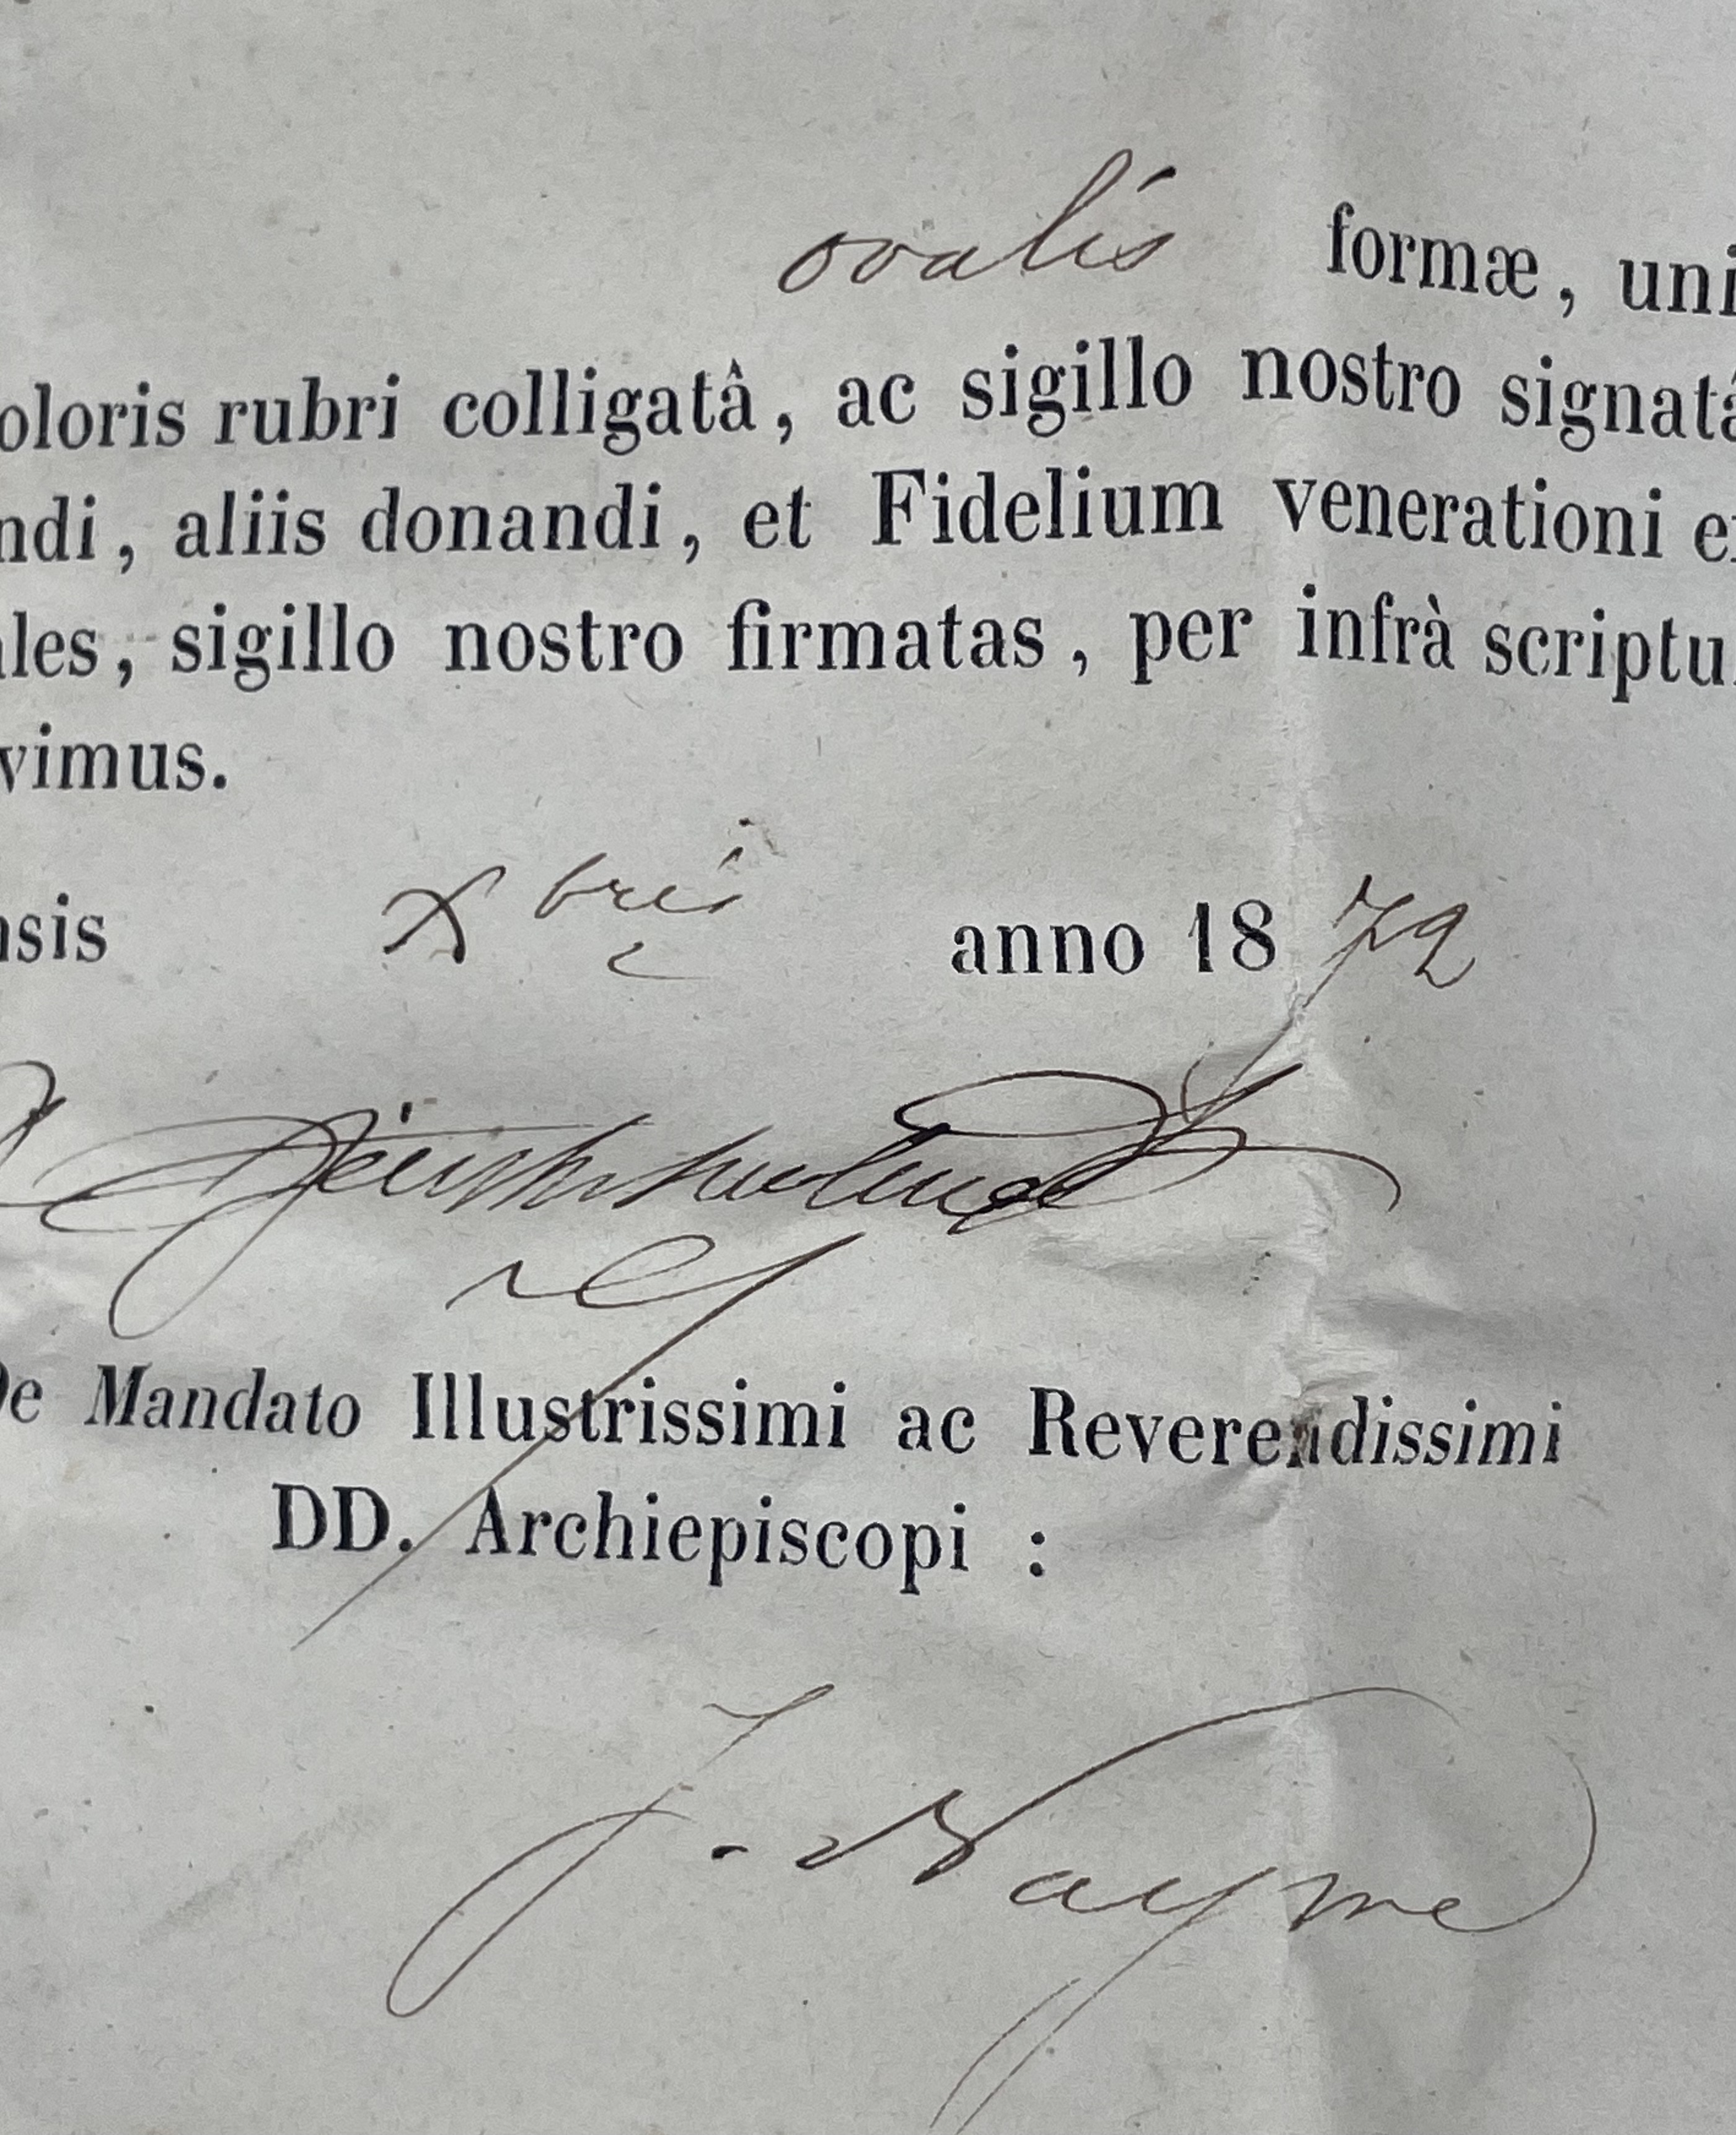 ovalis formæ, uni
oloris rubri colligatâ, ac sigillo nostro signatâ
ndi, aliis donandi, et Fidelium venerationi e
ales, sigillo nostro firmatas, per infrà scriptu
vimus.
nsis Xbris anno 1872
De Mandato Illustrissimi ac Reverendissimi
DD. Archiepiscopi :
J. Nayme